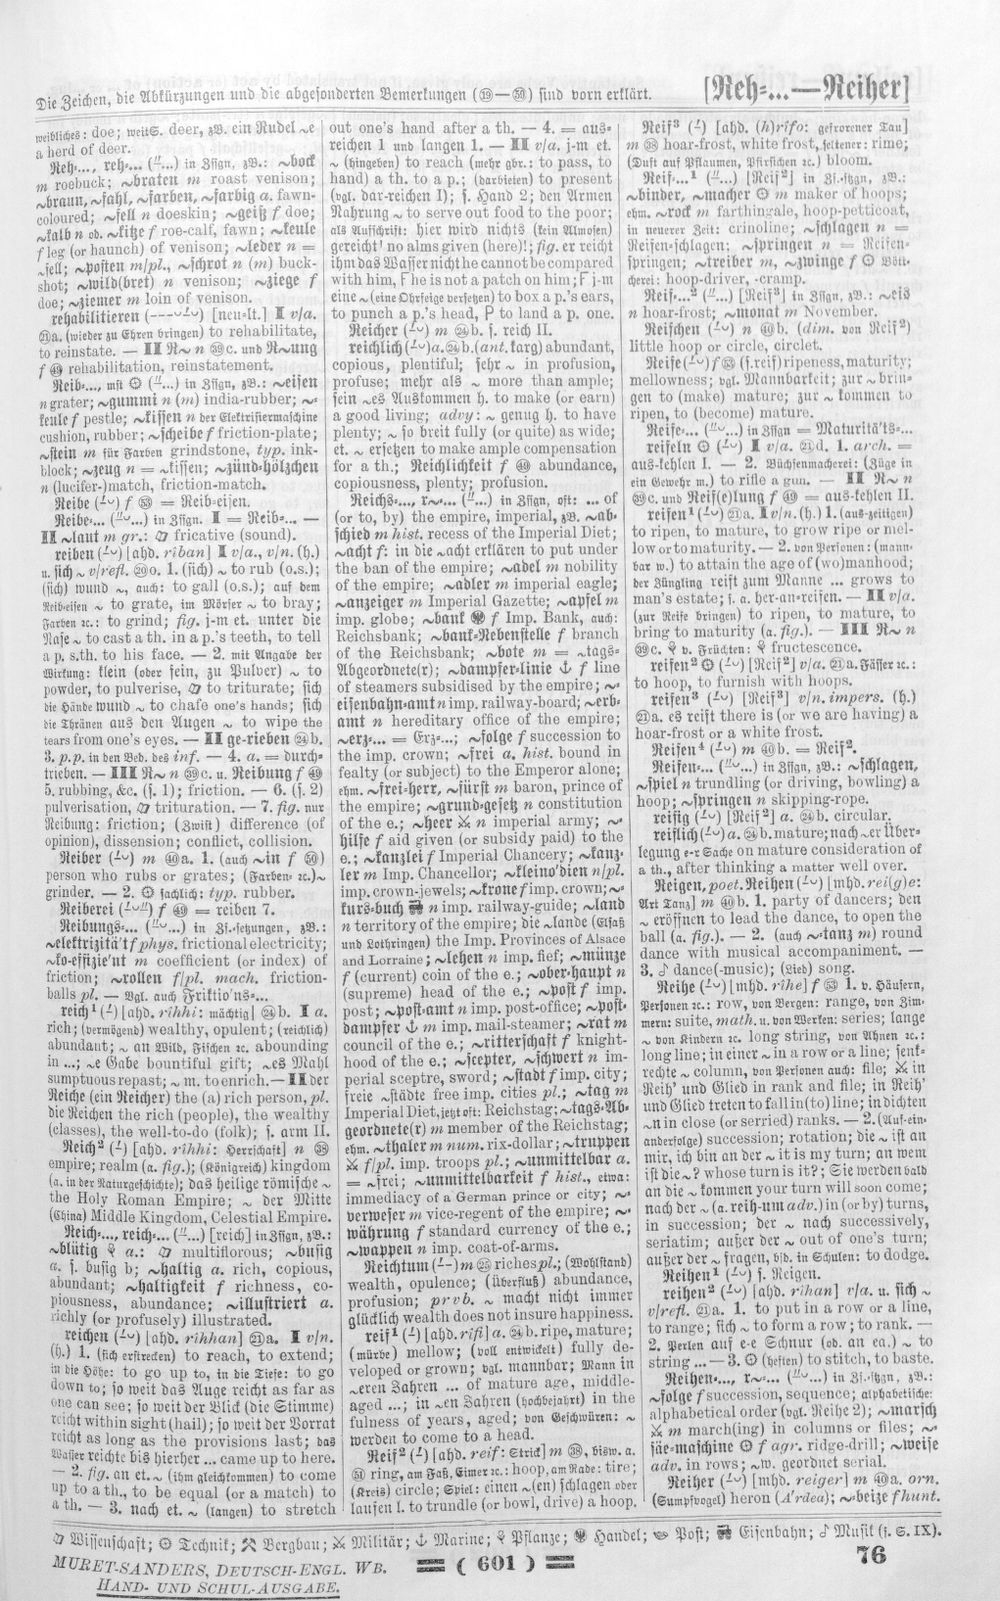 Die Zeichen, die Abkürzungen und die abgesonderten Bemerkungen (⑲—㊿) sind vorn erklärt.
[Reh=...—Reiher]
weibliches: doe; weitS. deer, zB. ein Rudel ~e
a herd of deer.
Reh=..., reh=... (″...) in Zssgn, zB.: ~bock
m roebuck; ~braten m roast venison;
~braun, ~fahl, ~farben, ~farbig a. fawn-
coloured; ~fell n doeskin; ~geiß f doe;
~kalb n od. ~kitze f roe-calf, fawn; ~keule
f leg (or haunch) of venison; ~leder n =
~fell; ~posten m/pl., ~schrot n (m) buck-
shot; ~wild(bret) n venison; ~ziege f
doe; ~ziemer m loin of venison.
rehabilitieren (---⏑–́⏑) [neu-lt.] I v/a.
㉑a. (wieder zu Ehren bringen) to rehabilitate,
to reinstate. — II R~ n ㊴c. und R~ung
f ㊾ rehabilitation, reinstatement.
Reib=..., mst ⚙ (″...) in Zssgn, zB.: ~eisen
n grater; ~gummi n (m) india-rubber; ~=
keule f pestle; ~kissen n der Elektrisiermaschine
cushion, rubber; ~scheibe f friction-plate;
~stein m für Farben grindstone, typ. ink-
block; ~zeug n = ~kissen; ~zünd=hölzchen
n (lucifer-)match, friction-match.
Reibe (–́⏑) f ㊳ = Reib=eisen.
Reibe=... (″⏑...) in Zssgn. I = Reib=... —
II ~laut m gr.: fricative (sound).
reiben (–́⏑) [ahd. rîban] I v/a., v/n. (h.)
u. sich ~ v/refl. ⑳o. 1. (sich) ~ to rub (o.s.);
(sich) wund ~, auch: to gall (o.s.); auf dem
Reib=eisen ~ to grate, im Mörser ~ to bray;
Farben ꝛc.: to grind; fig. j-m et. unter die
Nase ~ to cast a th. in a p.'s teeth, to tell
a p. s.th. to his face. — 2. mit Angabe der
Wirkung: klein (oder fein, zu Pulver) ~ to
powder, to pulverise, to triturate; sich
die Hände wund ~ to chafe one's hands; sich
die Thränen aus den Augen ~ to wipe the
tears from one's eyes. — II ge-rieben ㉔b.
3. p.p. in den Bed. des inf. — 4. a. = durch=
trieben. — III R~ n ㊴c. u. Reibung f ㊾
5. rubbing, &c. (s. 1); friction. — 6. (s. 2)
pulverisation, trituration. — 7. fig. nur
Reibung: friction; (Zwist) difference (of
opinion), dissension; conflict, collision.
Reiber (–́⏑) m ㊵a. 1. (auch ~in f ㊿)
person who rubs or grates; (Farben= ꝛc.)~
grinder. — 2. ⚙ sachlich: typ. rubber.
Reiberei (–́⏑″) f ㊾ = reiben 7.
Reibungs=... (″⏑...) in Zs.=setzungen, zB.:
~elektrizitä't f phys. frictional electricity;
~ko-effizie'nt m coefficient (or index) of
friction; ~rollen f/pl. mach. friction-
balls pl. — Vgl. auch Friktio'ns=...
reich¹ (–́) [ahd. rîhhi: mächtig] ㉔b. I a.
rich; (vermögend) wealthy, opulent; (reichlich)
abundant; ~ an Wild, Fischen ꝛc. abounding
in ...; ~e Gabe bountiful gift; ~es Mahl
sumptuous repast; ~ m. to enrich. — II der
Reiche (ein Reicher) the (a) rich person, pl.
die Reichen the rich (people), the wealthy
(classes), the well-to-do (folk); s. arm II.
Reich² (–́) [ahd. rîhhi: Herrschaft] n ㊳
empire; realm (a. fig.); (Königreich) kingdom
(a. in der Naturgeschichte); das heilige römische ~
the Holy Roman Empire; ~ der Mitte
(China) Middle Kingdom, Celestial Empire.
Reich=..., reich=... (″...) [reich] in Zssgn, zB.:
~blütig a.: multiflorous; ~busig
a. s. busig b; ~haltig a. rich, copious,
abundant; ~haltigkeit f richness, co-
piousness, abundance; ~illustriert a.
richly (or profusely) illustrated.
reichen (–́⏑) [ahd. rihhan] ㉑a. I v/n.
(h.) 1. (sich erstrecken) to reach, to extend;
in die Höhe: to go up to, in die Tiefe: to go
down to; so weit das Auge reicht as far as
one can see; so weit der Blick (die Stimme)
reicht within sight (hail); so weit der Vorrat
reicht as long as the provisions last; das
Wasser reichte bis hierher ... came up to here.
— 2. fig. an et. ~ (ihm gleichkommen) to come
up to a th., to be equal (or a match) to
a th. — 3. nach et. ~ (langen) to stretch
out one's hand after a th. — 4. = aus=
reichen 1 und langen 1. — II v/a. j-m et.
~ (hingeben) to reach (mehr gbr.: to pass, to
hand) a th. to a p.; (darbieten) to present
(vgl. dar-reichen I); s. Hand 2; den Armen
Nahrung ~ to serve out food to the poor;
als Aufschrift: hier wird nichts (kein Almosen)
gereicht' no alms given (here)!; fig. er reicht
ihm das Wasser nicht he cannot be compared
with him, F he is not a patch on him; F j-m
eine ~ (eine Ohrfeige versetzen) to box a p.'s ears,
to punch a p.'s head, P to land a p. one.
Reicher (–́⏑) m ㉔b. s. reich II.
reichlich (–́⏑) a. ㉔b. (ant. karg) abundant,
copious, plentiful; sehr ~ in profusion,
profuse; mehr als ~ more than ample;
sein ~es Auskommen h. to make (or earn)
a good living; advy: ~ genug h. to have
plenty; ~ so breit fully (or quite) as wide;
et. ~ ersetzen to make ample compensation
for a th.; Reichlichkeit f ㊾ abundance,
copiousness, plenty; profusion.
Reichs=..., r~=... (″...) in Zssgn, oft: ... of
(or to, by) the empire, imperial, zB. ~ab=
schied m hist. recess of the Imperial Diet;
~acht f: in die ~acht erklären to put under
the ban of the empire; ~adel m nobility
of the empire; ~adler m imperial eagle;
~anzeiger m Imperial Gazette; ~apfel m
imp. globe; ~bank f Imp. Bank, auch:
Reichsbank; ~bank=Nebenstelle f branch
of the Reichsbank; ~bote m = ~tags=
Abgeordnete(r); ~dampfer=linie ⚓ f line
of steamers subsidised by the empire; ~=
eisenbahn=amt n imp. railway-board; ~erb=
amt n hereditary office of the empire;
~erz=... = Erz=...; ~folge f succession to
the imp. crown; ~frei a. hist. bound in
fealty (or subject) to the Emperor alone;
ehm. ~frei=herr, ~fürst m baron, prince of
the empire; ~grund=gesetz n constitution
of the e.; ~heer ⚔ n imperial army; ~=
hilfe f aid given (or subsidy paid) to the
e.; ~kanzlei f Imperial Chancery; ~kanz=
ler m Imp. Chancellor; ~kleino'dien n/pl.
imp. crown-jewels; ~krone f imp. crown; ~=
kurs=buch n imp. railway-guide; ~land
n territory of the empire; die ~lande (Elsaß
und Lothringen) the Imp. Provinces of Alsace
and Lorraine; ~lehen n imp. fief; ~münze
f (current) coin of the e.; ~ober=haupt n
(supreme) head of the e.; ~post f imp.
post; ~post=amt n imp. post-office; ~post=
dampfer ⚓ m imp. mail-steamer; ~rat m
council of the e.; ~ritterschaft f knight-
hood of the e.; ~scepter, ~schwert n im-
perial sceptre, sword; ~stadt f imp. city;
freie ~städte free imp. cities pl.; ~tag m
Imperial Diet, jetzt oft: Reichstag; ~tags=Ab=
geordnete(r) m member of the Reichstag;
ehm. ~thaler m num. rix-dollar; ~truppen
⚔ f/pl. imp. troops pl.; ~unmittelbar a.
= ~frei; ~unmittelbarkeit f hist., etwa:
immediacy of a German prince or city; ~=
verweser m vice-regent of the empire; ~=
währung f standard currency of the e.;
~wappen n imp. coat-of-arms.
Reichtum (–́–) m ㉕ riches pl.; (Wohlstand)
wealth, opulence; (Überfluß) abundance,
profusion; prvb. ~ macht nicht immer
glücklich wealth does not insure happiness.
reif¹ (–́) [ahd. rîfi] a. ㉔b. ripe, mature;
(mürbe) mellow; (voll entwickelt) fully de-
veloped or grown; vgl. mannbar; Mann in
~eren Jahren ... of mature age, middle-
aged ...; in ~en Jahren (hochbejahrt) in the
fulness of years, aged; von Geschwüren: ~
werden to come to a head.
Reif² (–́) [ahd. reif: Strick] m ㊳, bisw. a.
㊶ ring, am Faß, Eimer ꝛc.: hoop, am Rade: tire;
(Kreis) circle; Spiel: einen ~(en) schlagen oder
laufen l. to trundle (or bowl, drive) a hoop.
Reif³ (–́) [ahd. (h)rîfo: gefrorener Tau]
m ㊳ hoar-frost, white frost, seltener: rime;
(Duft auf Pflaumen, Pfirsichen ꝛc.) bloom.
Reif=...¹ (″...) [Reif²] in Zs.=stzgn, zB.:
~binder, ~macher ⚙ m maker of hoops;
ehm. ~rock m farthingale, hoop-petticoat,
in neuerer Zeit: crinoline; ~schlagen n =
Reifen=schlagen; ~springen n = Reifen=
springen; ~treiber m, ~zwinge f ⚙ Bött=
cherei: hoop-driver, -cramp.
Reif=...² (″...) [Reif³] in Zssgn, zB.: ~eis
n hoar-frost; ~monat m November.
Reifchen (–́⏑) n ㊵b. (dim. von Reif²)
little hoop or circle, circlet.
Reife (–́⏑) f ㊳ (s. reif) ripeness, maturity;
mellowness; vgl. Mannbarkeit; zur ~ brin=
gen to (make) mature; zur ~ kommen to
ripen, to (become) mature.
Reife=... (″⏑...) in Zssgn = Maturitä'ts=...
reifeln ⚙ (–́⏑) I v/a. ㉑d. 1. arch. =
aus-kehlen I. — 2. Büchsenmacherei: (Züge in
ein Gewehr m.) to rifle a gun. — II R~ n
㊴c. und Reif(e)lung f ㊾ = aus-kehlen II.
reifen¹ (–́⏑) ㉑a. I v/n. (h.) 1. (aus-zeitigen)
to ripen, to mature, to grow ripe or mel-
low or to maturity. — 2. von Personen: (mann=
bar w.) to attain the age of (wo)manhood;
der Jüngling reift zum Manne ... grows to
man's estate; s. a. her-an-reifen. — II v/a.
(zur Reife bringen) to ripen, to mature, to
bring to maturity (a. fig.). — III R~ n
㊴c. v. Früchten: fructescence.
reifen² ⚙ (–́⏑) [Reif²] v/a. ㉑a. Fässer ꝛc.:
to hoop, to furnish with hoops.
reifen³ (–́⏑) [Reif³] v/n. impers. (h.)
㉑a. es reift there is (or we are having) a
hoar-frost or a white frost.
Reifen⁴ (–́⏑) m ㊵b. = Reif².
Reifen=... (″⏑...) in Zssgn, zB.: ~schlagen,
~spiel n trundling (or driving, bowling) a
hoop; ~springen n skipping-rope.
reifig (–́⏑) [Reif²] a. ㉔b. circular.
reiflich (–́⏑) a. ㉔b. mature; nach ~er Über=
legung e-r Sache on mature consideration of
a th., after thinking a matter well over.
Reigen, poet. Reihen (–́⏑) [mhd. rei(g)e:
Art Tanz] m ㊵b. 1. party of dancers; den
~ eröffnen to lead the dance, to open the
ball (a. fig.). — 2. (auch ~=tanz m) round
dance with musical accompaniment. —
3. ♪ dance(-music); (Lied) song.
Reihe (–́⏑) [mhd. rîhe] f ㊳ 1. v. Häusern,
Personen ꝛc.: row, von Bergen: range, von Zim=
mern: suite, math. u. von Werken: series; lange
~ von Kindern ꝛc. long string, von Ahnen ꝛc.:
long line; in einer ~ in a row or a line; senk=
rechte ~ column, von Personen auch: file; ⚔ in
Reih' und Glied in rank and file; in Reih'
und Glied treten to fall in(to) line; in dichten
~n in close (or serried) ranks. — 2. (Auf-ein=
anderfolge) succession; rotation; die ~ ist an
mir, ich bin an der ~ it is my turn; an wem
ist die ~? whose turn is it?; Sie werden bald
an die ~ kommen your turn will soon come;
nach der ~ (a. reih-um adv.) in (or by) turns,
in succession; der ~ nach successively,
seriatim; außer der ~ out of one's turn;
außer der ~ fragen, bsd. in Schulen: to dodge.
Reihen¹ (–́⏑) s. Reigen.
reihen² (–́⏑) [ahd. rîhan] v/a. u. sich ~
v/refl. ㉑a. 1. to put in a row or a line,
to range; sich ~ to form a row; to rank. —
2. Perlen auf e-e Schnur (od. an ea.) ~ to
string ... — 3. ⚙ (heften) to stitch, to baste.
Reihen=..., r~=... (″⏑...) in Zs.=stzgn, zB.:
~folge f succession, sequence; alphabetische:
alphabetical order (vgl. Reihe 2); ~marsch
⚔ m march(ing) in columns or files; ~=
säe=maschine ⚙ f agr. ridge-drill; ~weise
adv. in rows; ~w. geordnet serial.
Reiher (–́⏑) [mhd. reiger] m ㊵a. orn.
(Sumpfvogel) heron (A'rdea); ~=beize f hunt.
Wissenschaft; ⚙ Technik; ⚒ Bergbau; ⚔ Militär; ⚓ Marine; Pflanze; Handel; Post; Eisenbahn; ♪ Musik (s. S. IX).
MURET-SANDERS, DEUTSCH-ENGL. WB.
HAND- UND SCHUL-AUSGABE.
( 601 )
76